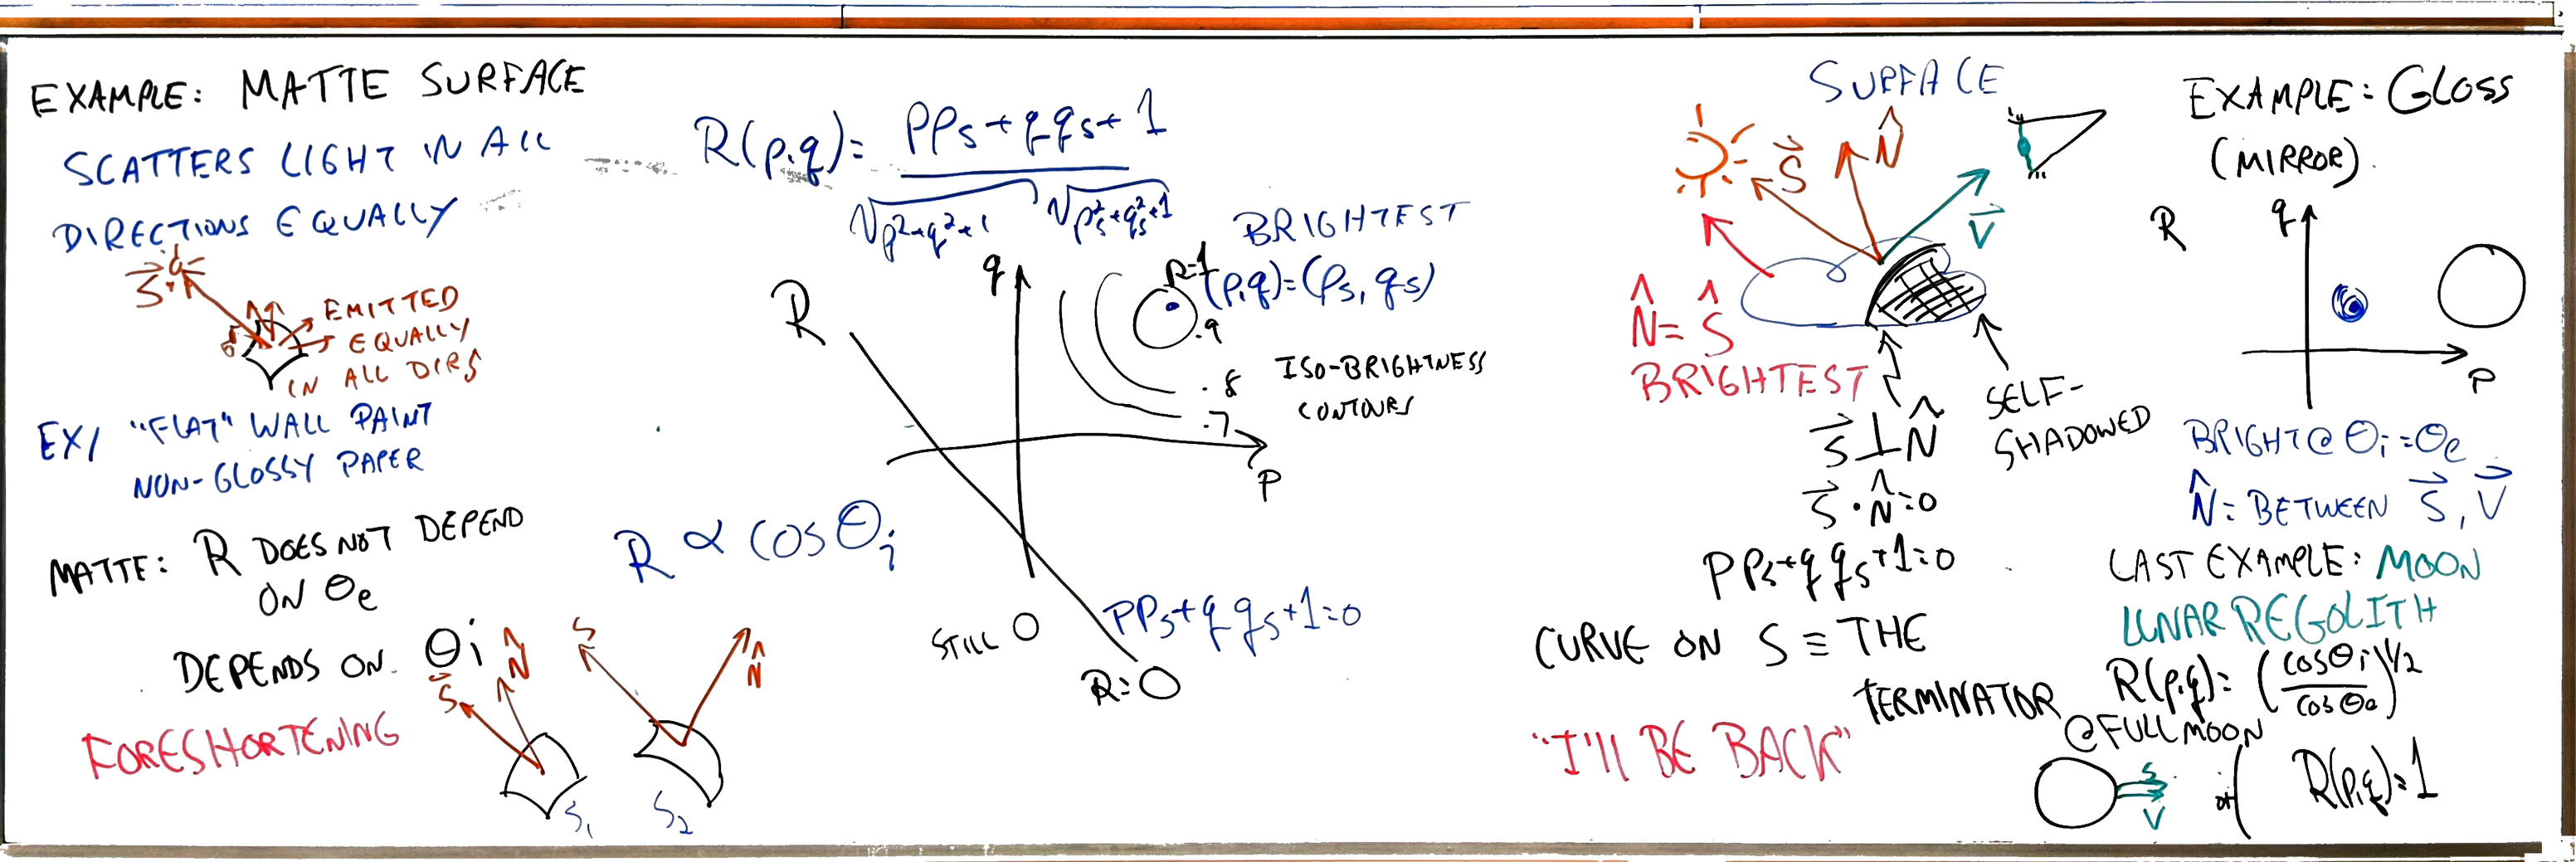 EXAMPLE: MATTE SURFACE
SCATTERS LIGHT IN ALL
DIRECTIONS EQUALLY
S
N
EMITTED
EQUALLY
IN ALL DIRS
EX/ "FLAT" WALL PAINT
NON-GLOSSY PAPER
MATTE: R DOES NOT DEPEND
ON θe
DEPENDS ON θi
FORESHORTENING
S N
S1
S N
S2
R(p,q)= pps+qqs+1
√p²+q²+1 √ps²+qs²+1
R ∝ COS θi
R
q
p
R=1
BRIGHTEST
(p,q)=(ps,qs)
.9
.8
.7
ISO-BRIGHTNESS
CONTOURS
STILL 0
pps+qqs+1=0
R=0
SURFACE
S N
V
N=S
BRIGHTEST
SELF-
SHADOWED
S⊥N
S·N=0
pps+qqs+1=0
CURVE ON S ≡ THE
TERMINATOR
"I'll BE BACK"
EXAMPLE: GLOSS
(MIRROR).
R
q
p
BRIGHT @ θi=θe
N= BETWEEN S, V
LAST EXAMPLE: MOON
LUNAR REGOLITH
R(p,q)= (cosθi/cosθe)^1/2
@FULL MOON
S
V
R(p,q)=1